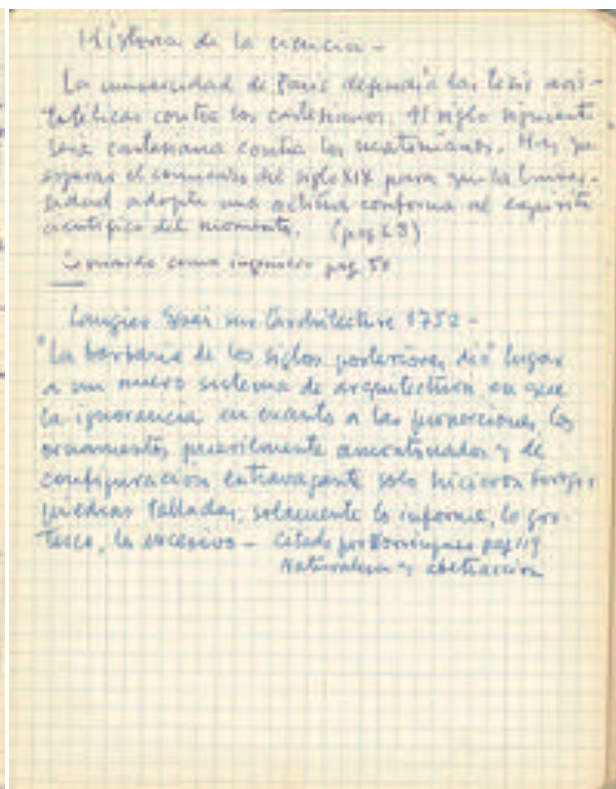 Historia de la ciencia -
La universidad de Paris defendía las tesis aris-
totélicas contra los cartesianos. Al siglo siguiente
será cartesiana contra los newtonianos. Hay que
esperar el comienzo del siglo XIX para que la Univer-
sidad adopte una actitud conforme al espíritu
científico del momento. (pag
como ingeniero pag 50
Laugier Essai sur l'architecture 1752 -
"La barbarie de los siglos posteriores dió lugar
a un nuevo sistema de arquitectura en que
la ignorancia en cuanto a las proporciones, los
ornamentos puerilmente amontonados y de
configuración extravagante solo hicieron
piedras talladas, solamente lo informe, lo gro-
tesco, lo excesivo - Citado por pag 119
Naturaleza y abstracción